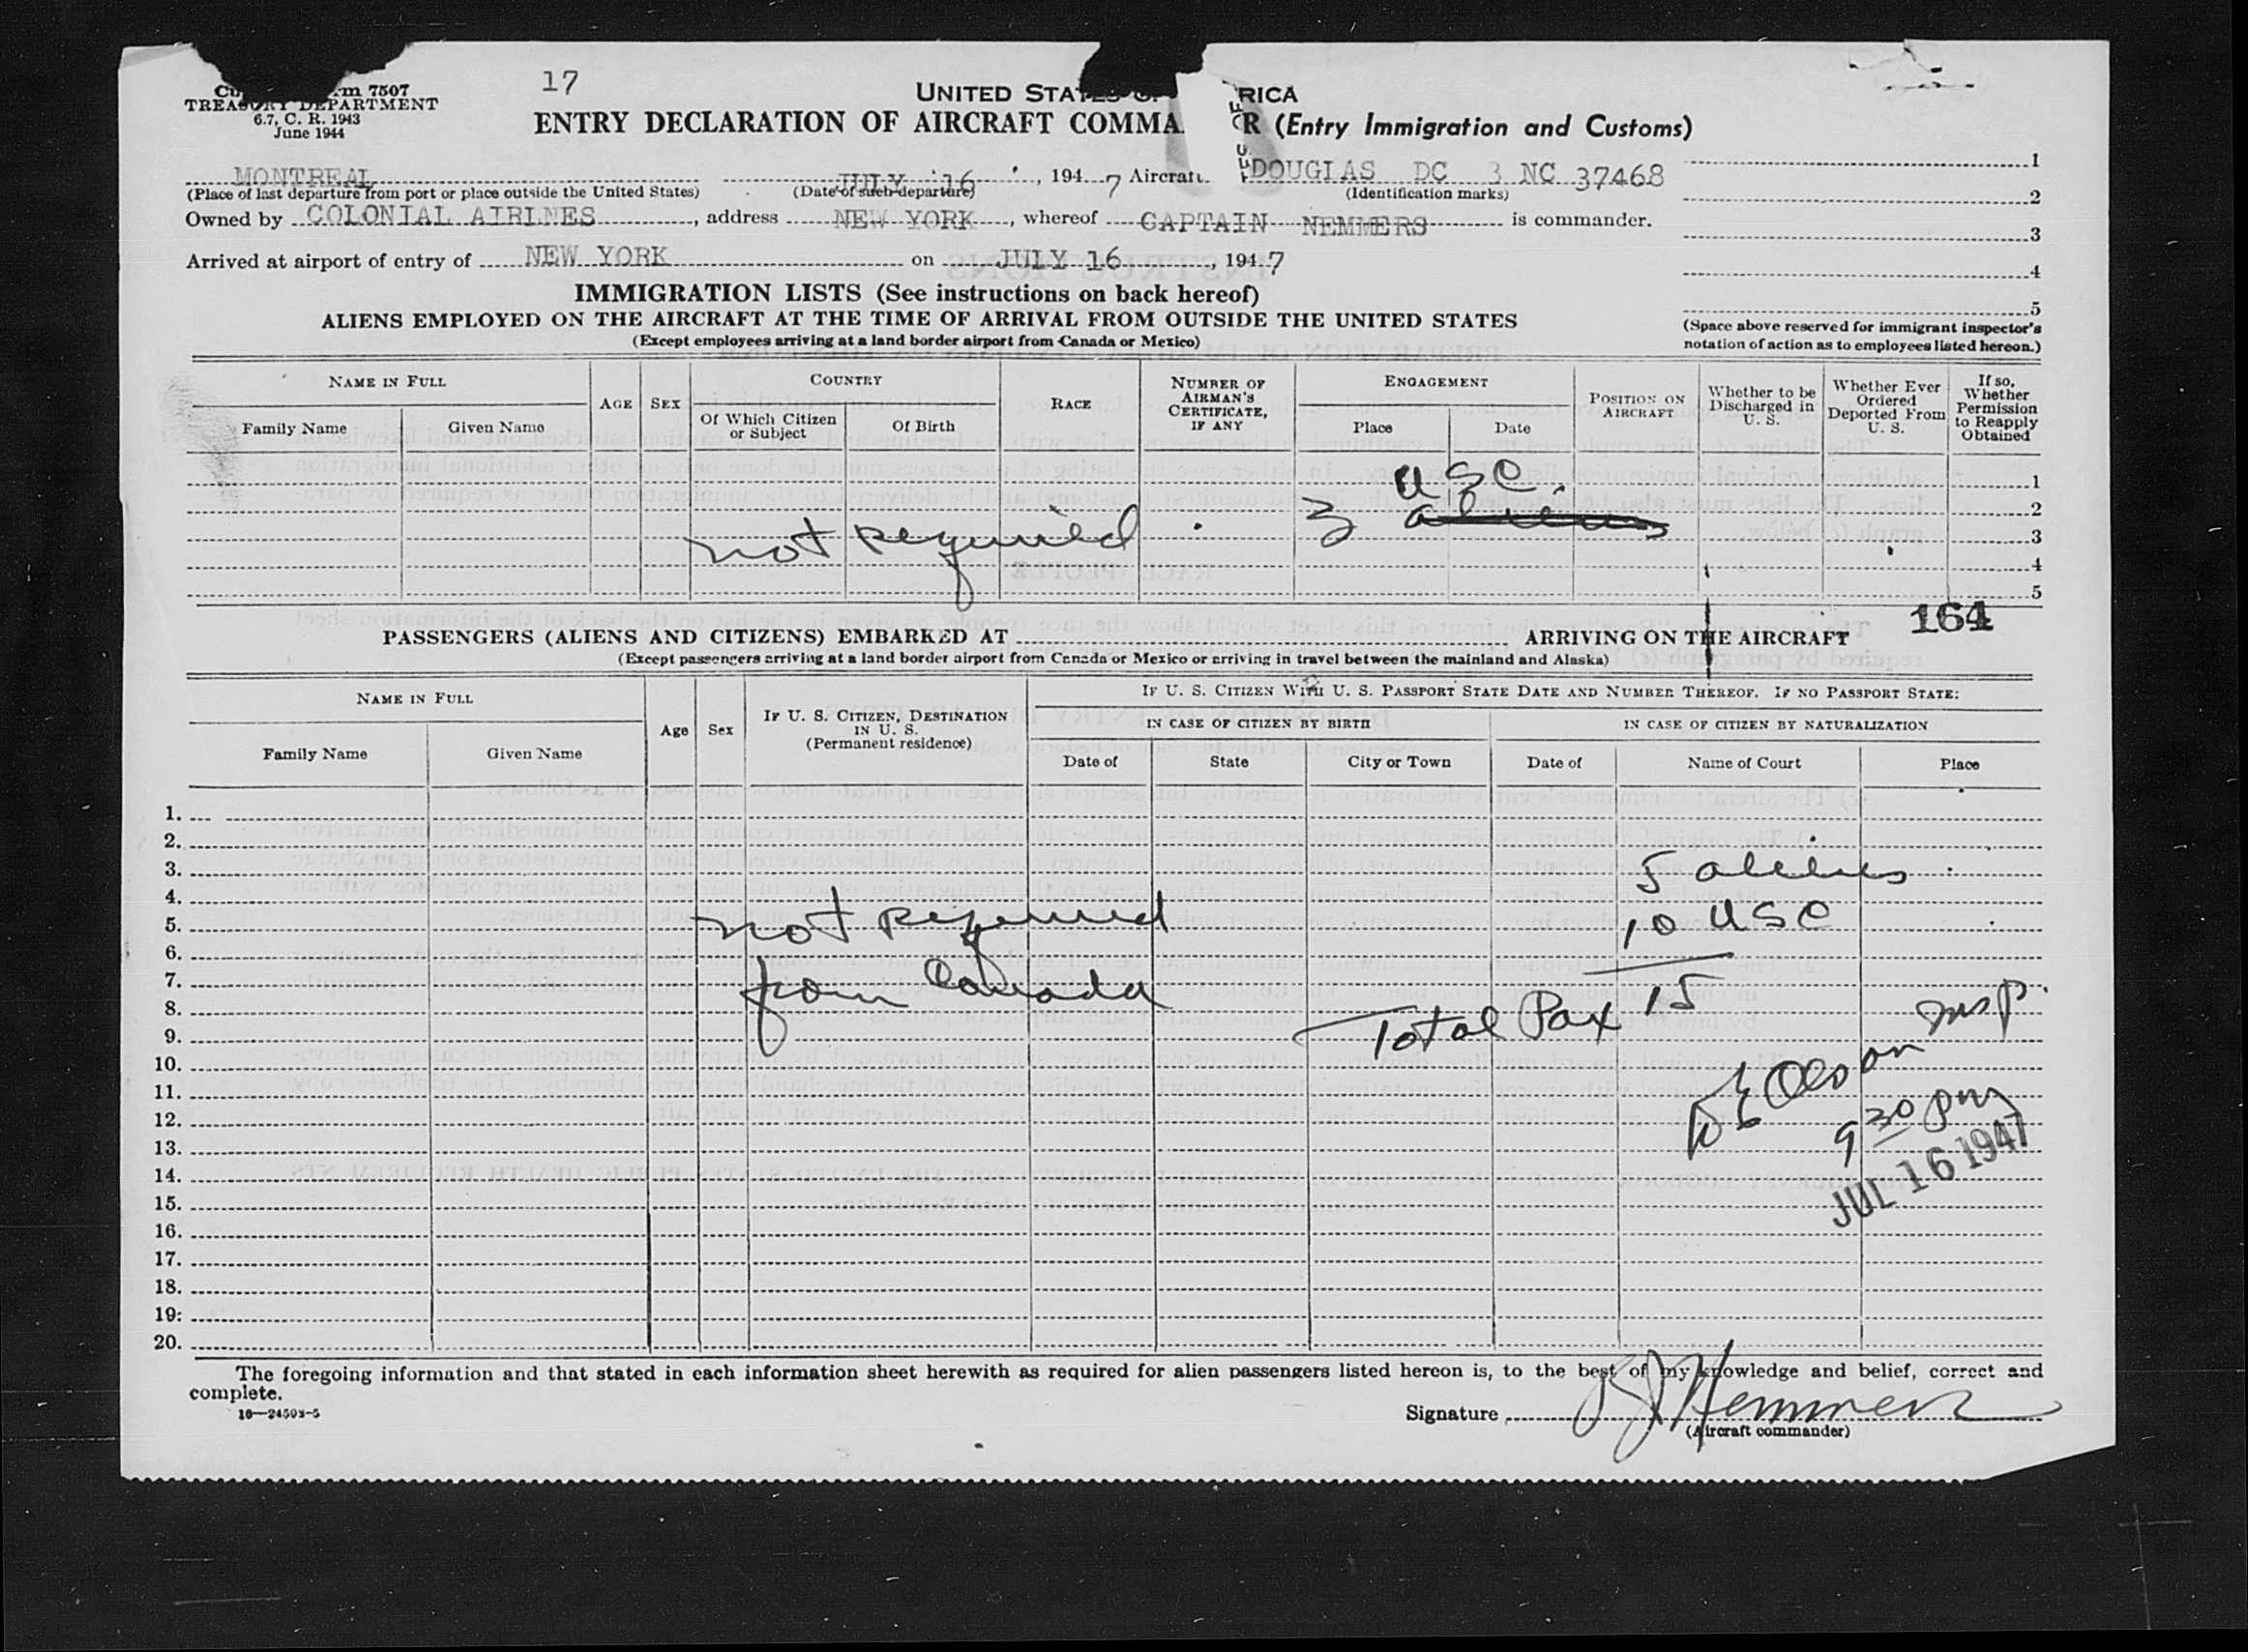 17
Cu rm 7507
TREASURY DEPARTMENT
6.7, C. R. 1943
June 1944
UNITED STATES O RICA
ENTRY DECLARATION OF AIRCRAFT COMMA R (Entry Immigration and Customs)
MONTREAL JULY 16, 1947 Aircraft DOUGLAS DC 3 NC 37468
(Place of last departure from port or place outside the United States) (Date of such departure) (Identification marks)
Owned by COLONIAL AIRLNES, address NEW YORK, whereof CAPTAIN NEMMERS is commander.
Arrived at airport of entry of NEW YORK on JULY 16, 1947
1
2
3
4
5
(Space above reserved for immigrant inspector's
notation of action as to employees listed hereon.)
IMMIGRATION LISTS (See instructions on back hereof)
ALIENS EMPLOYED ON THE AIRCRAFT AT THE TIME OF ARRIVAL FROM OUTSIDE THE UNITED STATES
(Except employees arriving at a land border airport from Canada or Mexico)
NAME IN FULL
Family Name Given Name
AGE SEX
COUNTRY
Of Which Citizen or Subject
Of Birth
RACE
NUMBER OF AIRMAN'S CERTIFICATE, IF ANY
ENGAGEMENT
Place Date
POSITION ON AIRCRAFT
Whether to be Discharged in U. S.
Whether Ever Ordered Deported From U. S.
If so, Whether Permission to Reapply Obtained
USC. 1
3 aliens 2
not required 3
4
5
164
PASSENGERS (ALIENS AND CITIZENS) EMBARKED AT ARRIVING ON THE AIRCRAFT
(Except passengers arriving at a land border airport from Canada or Mexico or arriving in travel between the mainland and Alaska)
NAME IN FULL
Family Name Given Name
Age Sex
IF U. S. CITIZEN, DESTINATION IN U. S.
(Permanent residence)
IF U. S. CITIZEN WITH U. S. PASSPORT STATE DATE AND NUMBER THEREOF. IF NO PASSPORT STATE:
IN CASE OF CITIZEN BY BIRTH IN CASE OF CITIZEN BY NATURALIZATION
Date of State City or Town Date of Name of Court Place
1.
2.
3. 5 aliens
4.
5. not required 10 USC
6.
7. from Canada
8. Total Pax 15 Insp.
9.
10. Olson
11.
12. 9 30 pm
13.
14. JUL 16 1947
15.
16.
17.
18.
19.
20.
The foregoing information and that stated in each information sheet herewith as required for alien passengers listed hereon is, to the best of my knowledge and belief, correct and
complete.
16—24503-5
Signature Nemmers
(Aircraft commander)